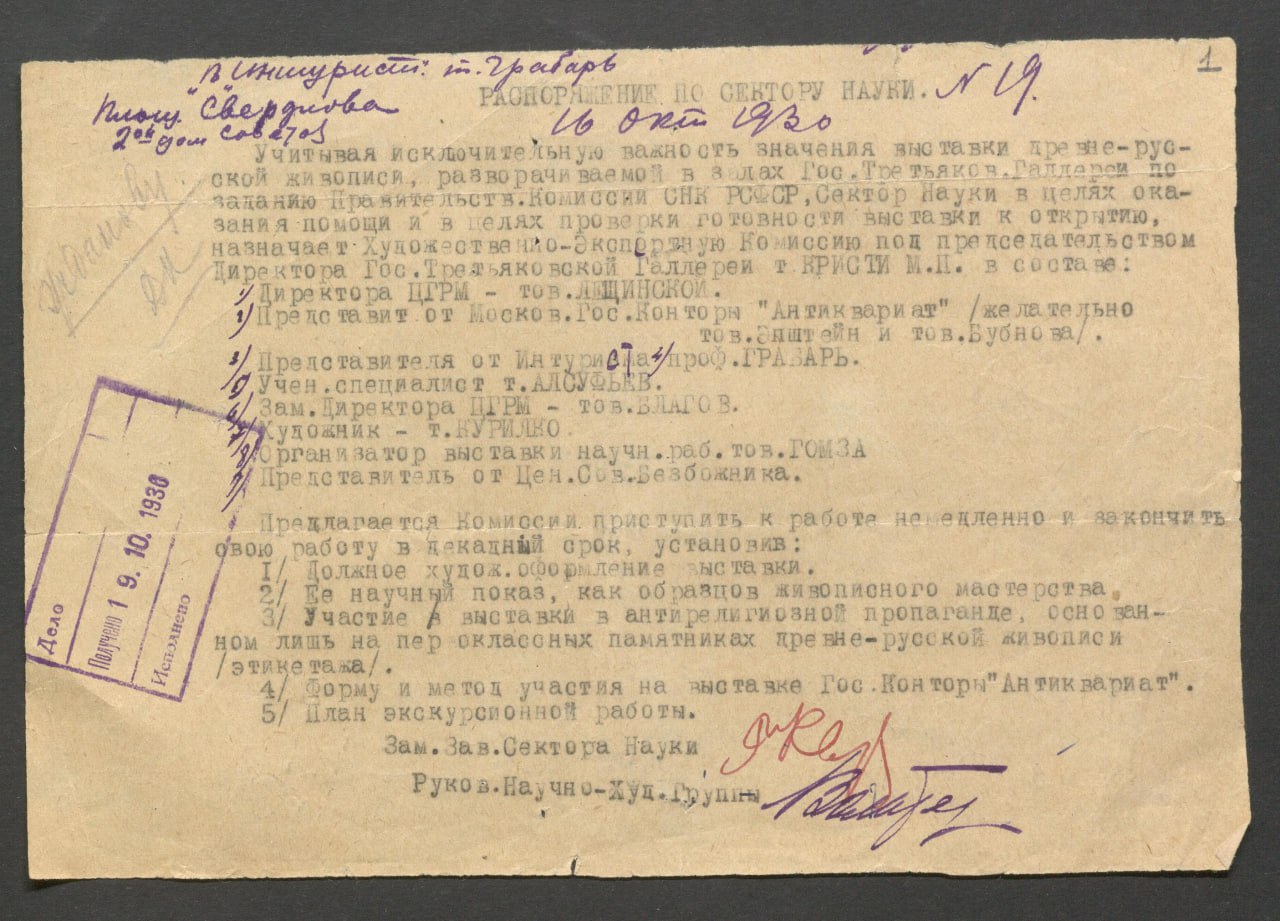 1
"Интурист" т. Грабарь
Площ. Свердлова
2ой дом Советов
РАСПОРЯЖЕНИЕ ПО СЕКТОРУ НАУКИ. N 19.
16 Окт 1930
Учитывая исключительную важность значения выставки древне-рус-
ской живописи, разворачиваемой в залах Гос.Третьяков.Галлереи по
заданию Правительств.Комиссии СНК РСФСР,Сектор Науки в целях ока-
зания помощи и в целях проверки готовности выставки к открытию,
назначает Художественно-Экспортную Комиссию под председательством
Директора Гос.Третьяковской Галлереи т.КРИСТИ М.П. в составе:
1/ Директора ЦГРМ - тов.ЛЕЩИНСКОЙ.
2/ Представит от Москов.Гос.Конторы "Антиквариат" /желательно
тов.Эпштейн и тов.Бубнова/.
3/ Представителя от Интуриста 4/ проф.ГРАБАРЬ.
5/ Учен.специалист т.АЛСУФЬЕВ.
6/ Зам.Директора ЦГРМ - тов.БЛАГОВ.
7/ Художник - т.КУРИЛКО
8/ Организатор выставки научн.раб.тов.ГОМЗА
9/ Представитель от Цен.Сов.Безбожника.
Предлагается Комиссии приступить к работе немедленно и закончить
свою работу в декадный срок, установив:
1/ Должное худож.оформление выставки.
2/ Ее научный показ, как образцов живописного мастерства.
3/ Участие выставки в антирелигиозной пропаганде, основан-
ном лишь на пер оклассных памятниках древне-русской живописи
/этикетажа/.
4/ Форму и метод участия на выставке Гос.Конторы"Антиквариат".
5/ План экскурсионной работы.
Зам.Зав.Сектора Науки
Руков.Научно-Худ.Группы
Дело
Получено 19.10.1930
Исполнено